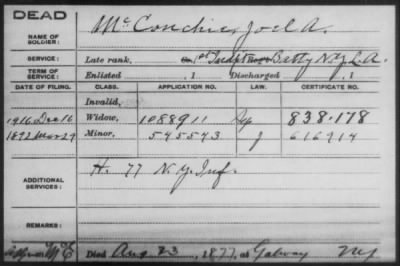 DEAD
NAME OF SOLDIER: McConchie, Joel A.
SERVICE: Late rank, 1st Indpt Batty N.Y. L.A.
TERM OF SERVICE: Enlisted , 1 Discharged , 1
DATE OF FILING. CLASS. APPLICATION NO. LAW. CERTIFICATE NO.
Invalid,
1916 Dec 16 Widow, 1088911 838.178
1892 Mar 29 Minor, 545543 J 616914
ADDITIONAL SERVICES: H. 77 N.Y. Inf.
REMARKS:
Died Aug 23, 1877, at Galway NY